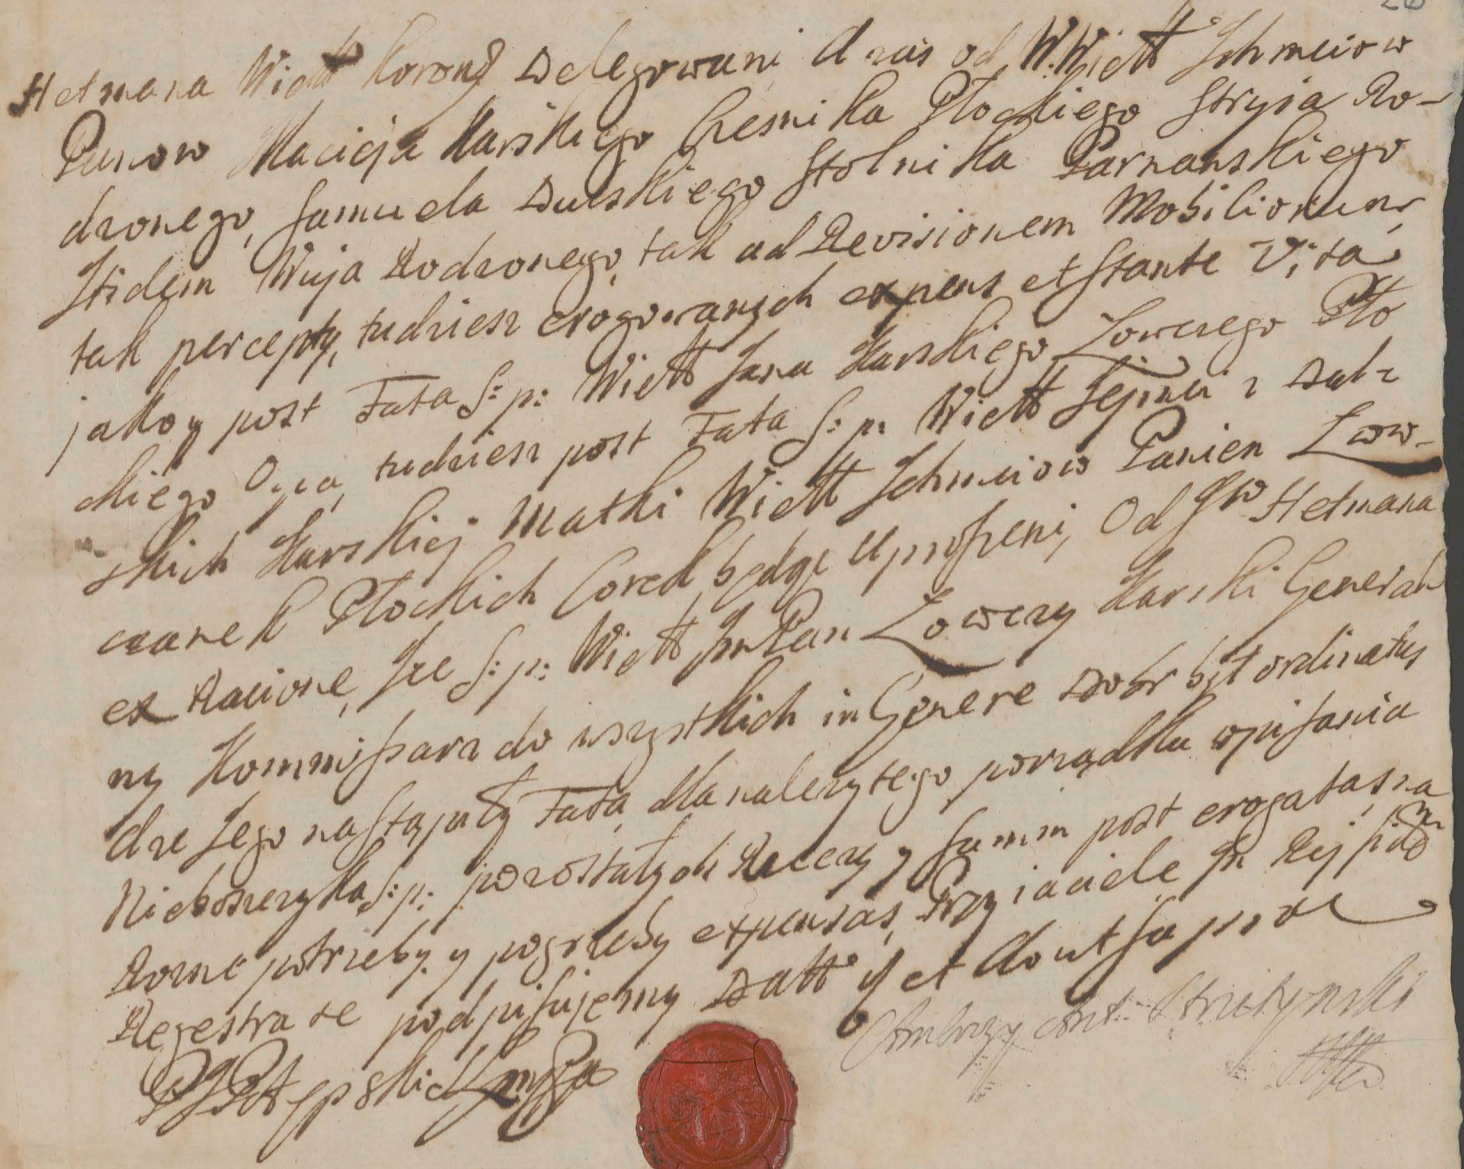 Hetmana Wielk Koronng Delegowani A zas od W.Wielk Ichmciow
Panow Macieja Karskiego Czesnika Płockiego Stryja Ro-
dzonego, Samuela Dulskiego Stolnika Parnawskiego
Itidem Wuja Rodzonego, tak ad Revisionem Mobiliorum,
tak percepty, tudziesz erogowanych expens et Stante Vita
jako y post Fata S: p: Wielk Jana Karskiego Łowczego Pło
ckiego Oyca, tudziesz post Fata S: p: Wielk Jejmci z Dul-
skich Karskiej Matki Wielk Ichmciow Panien Łow-
czanek Płockich Corek, będąc uproszeni, Od JW Hetmana
ex Racione, Ize S: p: Wielk Jm Pan Łowczy Karski General
ny Kommissarz do wszystkich in Genere Dobr był ordinatus
dze Jego nastąpiły Fata, dla nalezytego porządku opisania
Nieboszczyka S: p: pozostałych Rzeczy y Summ post erogatas na
Rozne potrzeby y pogrzeby expensas, Przyiaciele
Regestra te podpisujemy Datt et ut supra